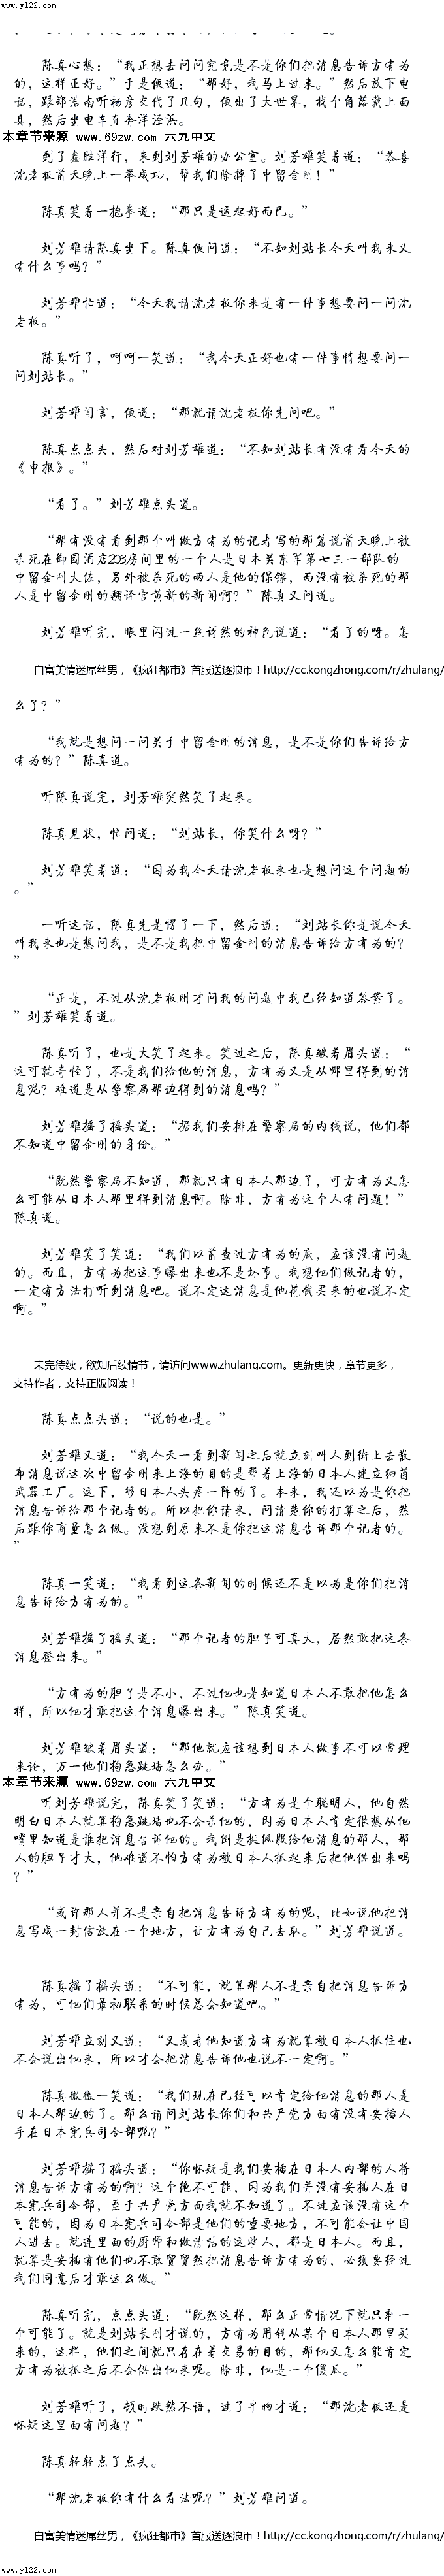 www.yl22.com
陈真心想：“我正想去问问究竟是不是你们把消息告诉方有为
的，这样正好。”于是便道：“那好，我马上过来。”然后放下电
话，跟郑浩南听杨彦交代了几句，便出了大世界，找个角落戴上面
具，然后坐电车直奔洋泾浜。
本章节来源 www.69zw.com 六九中文
到了鑫胜洋行，来到刘芳雄的办公室。刘芳雄笑着道：“恭喜
沈老板前天晚上一举成功，帮我们除掉了中留金刚！”
陈真笑着一抱拳道：“那只是运起好而已。”
刘芳雄请陈真坐下。陈真便问道：“不知刘站长今天叫我来又
有什么事吗？”
刘芳雄忙道：“今天我请沈老板你来是有一件事想要问一问沈
老板。”
陈真听了，呵呵一笑道：“我今天正好也有一件事情想要问一
问刘站长。”
刘芳雄闻言，便道：“那就请沈老板你先问吧。”
陈真点点头，然后对刘芳雄道：“不知刘站长有没有看今天的
《申报》。”
“看了。”刘芳雄点头道。
“那有没有看到那个叫做方有为的记者写的那篇说前天晚上被
杀死在御园酒店203房间里的一个人是日本关东军第七三一部队的
中留金刚大佐，另外被杀死的两人是他的保镖，而没有被杀死的那
人是中留金刚的翻译官黄新的新闻啊？”陈真又问道。
刘芳雄听完，眼里闪过一丝讶然的神色说道：“看了的呀。怎
白富美情迷屌丝男，《疯狂都市》首服送逐浪币！http://cc.kongzhong.com/r/zhulang/
么了？”
“我就是想问一问关于中留金刚的消息，是不是你们告诉给方
有为的？”陈真道。
听陈真说完，刘芳雄突然笑了起来。
陈真见状，忙问道：“刘站长，你笑什么呀？”
刘芳雄笑着道：“因为我今天请沈老板来也是想问这个问题的
。”
一听这话，陈真先是愣了一下，然后道：“刘站长你是说今天
叫我来也是想问我，是不是我把中留金刚的消息告诉给方有为的？
”
“正是，不过从沈老板刚才问我的问题中我已经知道答案了。
”刘芳雄笑着道。
陈真听了，也是大笑了起来。笑过之后，陈真皱着眉头道：“
这可就奇怪了，不是我们给他的消息，方有为又是从哪里得到的消
息呢？难道是从警察局那边得到的消息吗？”
刘芳雄摇了摇头道：“据我们安排在警察局的内线说，他们都
不知道中留金刚的身份。”
“既然警察局不知道，那就只有日本人那边了，可方有为又怎
么可能从日本人那里得到消息啊。除非，方有为这个人有问题！”
陈真道。
刘芳雄笑了笑道：“我们以前查过方有为的底，应该没有问题
的。而且，方有为把这事曝出来也不是坏事。我想他们做记者的，
一定有方法打听到消息吧。说不定这消息是他花钱买来的也说不定
啊。”
未完待续，欲知后续情节，请访问www.zhulang.com。更新更快，章节更多，
支持作者，支持正版阅读！
陈真点点头道：“说的也是。”
刘芳雄又道：“我今天一看到新闻之后就立刻叫人到街上去散
布消息说这次中留金刚来上海的目的是帮着上海的日本人建立细菌
武器工厂。这下，够日本人头疼一阵的了。本来，我还以为是你把
消息告诉给那个记者的。所以把你请来，问清楚你的打算之后，然
后跟你商量怎么做。没想到原来不是你把这消息告诉那个记者的。
”
陈真一笑道：“我看到这条新闻的时候还不是以为是你们把消
息告诉给方有为的。”
刘芳雄摇了摇头道：“那个记者的胆子可真大，居然敢把这条
消息登出来。”
“方有为的胆子是不小，不过他也是知道日本人不敢把他怎么
样，所以他才敢把这个消息曝出来。”陈真笑道。
刘芳雄皱着眉头道：“那他就应该想到日本人做事不可以常理
来论，万一他们狗急跳墙怎么办。”
本章节来源 www.69zw.com 六九中文
听刘芳雄说完，陈真笑了笑道：“方有为是个聪明人，他自然
明白日本人就算狗急跳墙也不会杀他的，因为日本人肯定很想从他
嘴里知道是谁把消息告诉他的。我倒是挺佩服给他消息的那人，那
人的胆子才大，他难道不怕方有为被日本人抓起来后把他供出来吗
？”
“或许那人并不是亲自把消息告诉方有为的呢，比如说他把消
息写成一封信放在一个地方，让方有为自己去取。”刘芳雄说道。
陈真摇了摇头道：“不可能，就算那人不是亲自把消息告诉方
有为，可他们最初联系的时候总会知道吧。”
刘芳雄立刻又道：“又或者他知道方有为就算被日本人抓住也
不会说出他来，所以才会把消息告诉他也说不一定啊。”
陈真微微一笑道：“我们现在已经可以肯定给他消息的那人是
日本人那边的了。那么请问刘站长你们和共产党方面有没有安插人
手在日本宪兵司令部呢？”
刘芳雄摇了摇头道：“你怀疑是我们安插在日本人内部的人将
消息告诉方有为的啊？这个绝不可能，因为我们并没有安插人在日
本宪兵司令部，至于共产党方面我就不知道了。不过应该没有这个
可能的，因为日本宪兵司令部是他们的重要地方，不可能会让中国
人进去。就连里面的厨师和做清洁的这些人，都是日本人。而且，
就算是安插有他们也不敢贸贸然把消息告诉方有为的，必须要经过
我们同意后才敢这么做。”
陈真听完，点点头道：“既然这样，那么正常情况下就只剩一
个可能了。就是刘站长刚才说的，方有为用钱从某个日本人那里买
来的，这样，他们之间就只存在着交易的目的，那他又怎么能肯定
方有为被抓之后不会供出他来呢。除非，他是一个傻瓜。”
刘芳雄听了，顿时默然不语，过了半晌才道：“那沈老板还是
怀疑这里面有问题？”
陈真轻轻点了点头。
“那沈老板你有什么看法呢？”刘芳雄问道。
白富美情迷屌丝男，《疯狂都市》首服送逐浪币！http://cc.kongzhong.com/r/zhulang/
www.yl22.com